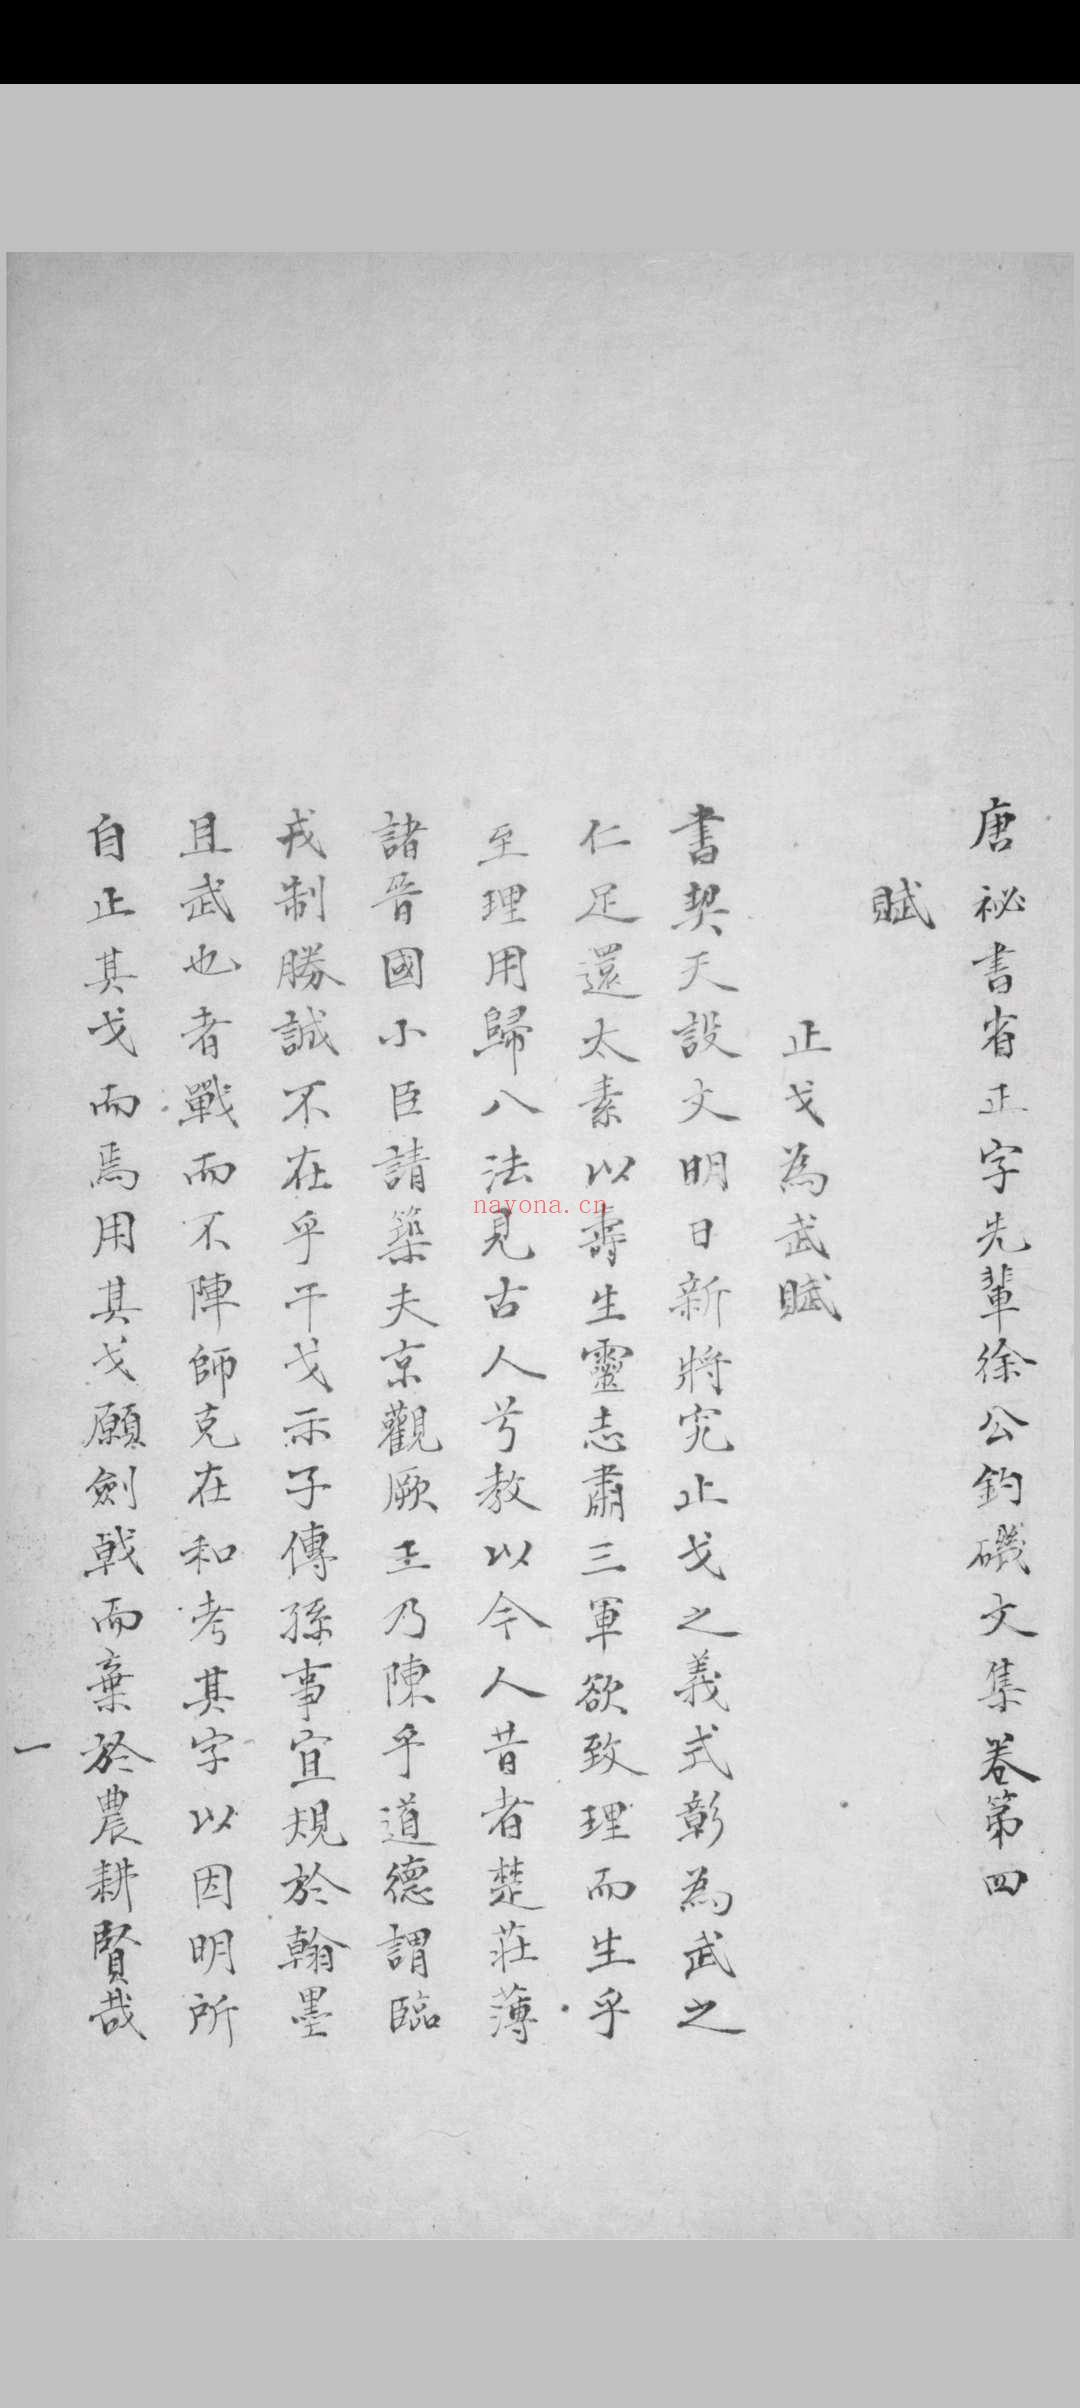 唐祕書省正字先輩徐公釣磯文集卷第四
賦
止戈為武賦
書契天設文明日新將究止戈之義式彰為武之
仁足還太素以壽生靈志肅三軍欲致理而生乎
至理用歸八法見古人兮教以今人昔者楚莊薄
諸晉國小臣請築夫京觀厥王乃陳乎道德謂臨
戎制勝誠不在乎干戈示子傳孫事宜規於翰墨
且武也者戰而不陣師克在和考其字以因明所
自止其戈而焉用其戈願劍戟而棄於農耕賢哉
一
nayona.cn